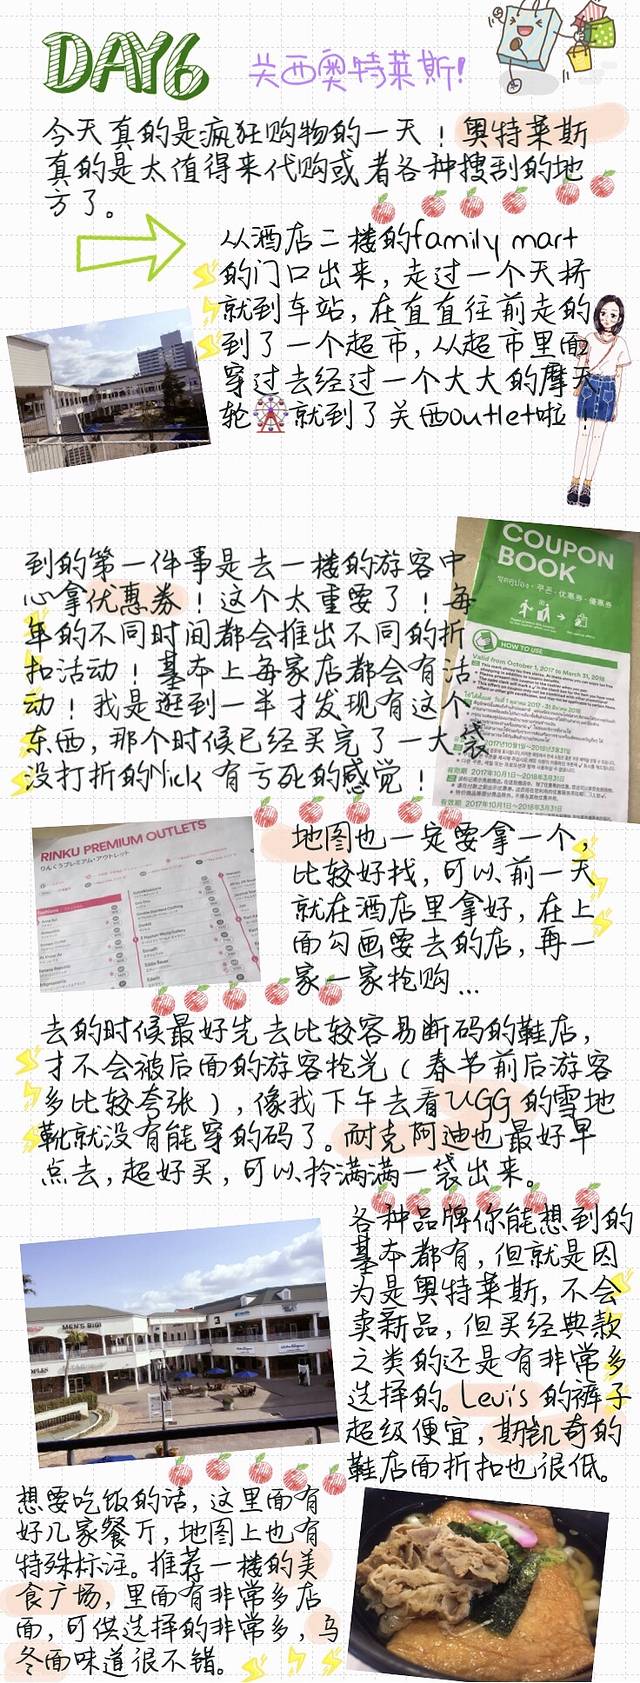 DAY6
关西奥特莱斯!
今天真的是疯狂购物的一天！奥特莱斯
真的是太值得来代购或者各种搜刮的地
方了。
从酒店二楼的family mart
的门口出来，走过一个天桥
就到车站，在直直往前走的
到了一个超市，从超市里面
穿过去经过一个大大的摩天
轮就到了关西outlet啦！
到的第一件事是去一楼的游客中
心拿优惠券！这个太重要了！每
年的不同时间都会推出不同的折
扣活动！基本上每家店都会有活
动！我是逛到一半才发现有这个
东西，那个时候已经买完了一大袋
没打折的Nick有亏死的感觉！
COUPON
BOOK
คูปอง・쿠폰・优惠券・優惠券
HOW TO USE
Valid from October 1, 2017 to March 31, 2018
有效期 2017年10月1日~2018年3月31日
有效期 2017年10月1日~2018年3月31日
RINKU PREMIUM OUTLETS
りんくうプレミアム・アウトレット
地图也一定要拿一个，
比较好找，可以前一天
就在酒店里拿好，在上
面勾画要去的店，再一
家一家抢购...
去的时候最好先去比较容易断码的鞋店，
才不会被后面的游客抢光（春节前后游客
多比较夸张），像我下午去看UGG的雪地
靴就没有能穿的码了。耐克阿迪也最好早
点去，超好买，可以拎满满一袋出来。
各种品牌你能想到的
基本都有，但就是因
为是奥特莱斯，不会
卖新品，但买经典款
之类的还是有非常多
选择的。Levi's的裤子
超级便宜，斯凯奇的
鞋店面折扣也很低。
MEN'S BIGI
想要吃饭的话，这里面有
好几家餐厅，地图上也有
特殊标注。推荐一楼的美
食广场，里面有非常多店
面，可供选择的非常多，乌
冬面味道很不错。